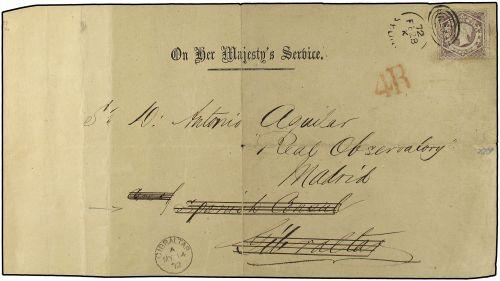 72
FE B
On Her Majesty's Service.
4R
Sr Dn Antonio Aguilar
"Real Observatory"
Madrid
Spanish Consul
Gibraltar
GIBRALTAR
A
MY 14
72